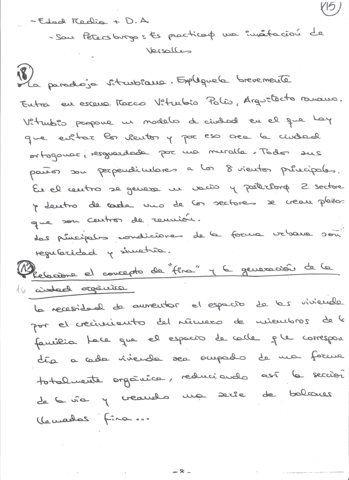 15
- Edad Media + D.A
- San Petersburgo: Es practicaɸ una imitación de
Versalles
18
La paradoja vitrubiana. Explíquela brevemente
Entra en escena Marco Vitrubio Polio, Arquitecto romano.
Vitrubio propone un modelo de ciudad en el que hay
que evitar los vientos y por eso crea la ciudad
ortogonal, resguardada por una muralla. Todos sus
paños son perpendiculares a los 8 vientos principales.
En el centro se genera un vacío y posteriorɸ 2 sectores
y dentro de cada uno de los sectores se crean plazas
que son centros de reunión.
Las principales condiciones de la forma urbana son
regularidad y simetría.
19
Relacione el concepto de "fina" y la generación de la
ciudad orgánica
La necesidad de aumentar el espacio de las vivienda
por el crecimiento del número de miembros de la
familia hace que el espacio de calle que le correspon
día a cada vivienda sea ocupado de una forma
totalmente orgánica, reduciendo así la sección
de la vía y creando una serie de balcones
llamadas fina...